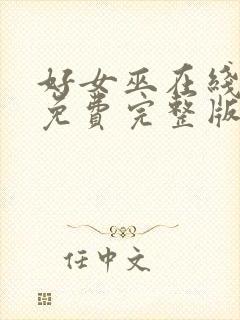 好女巫在线
免费完整版
任中文